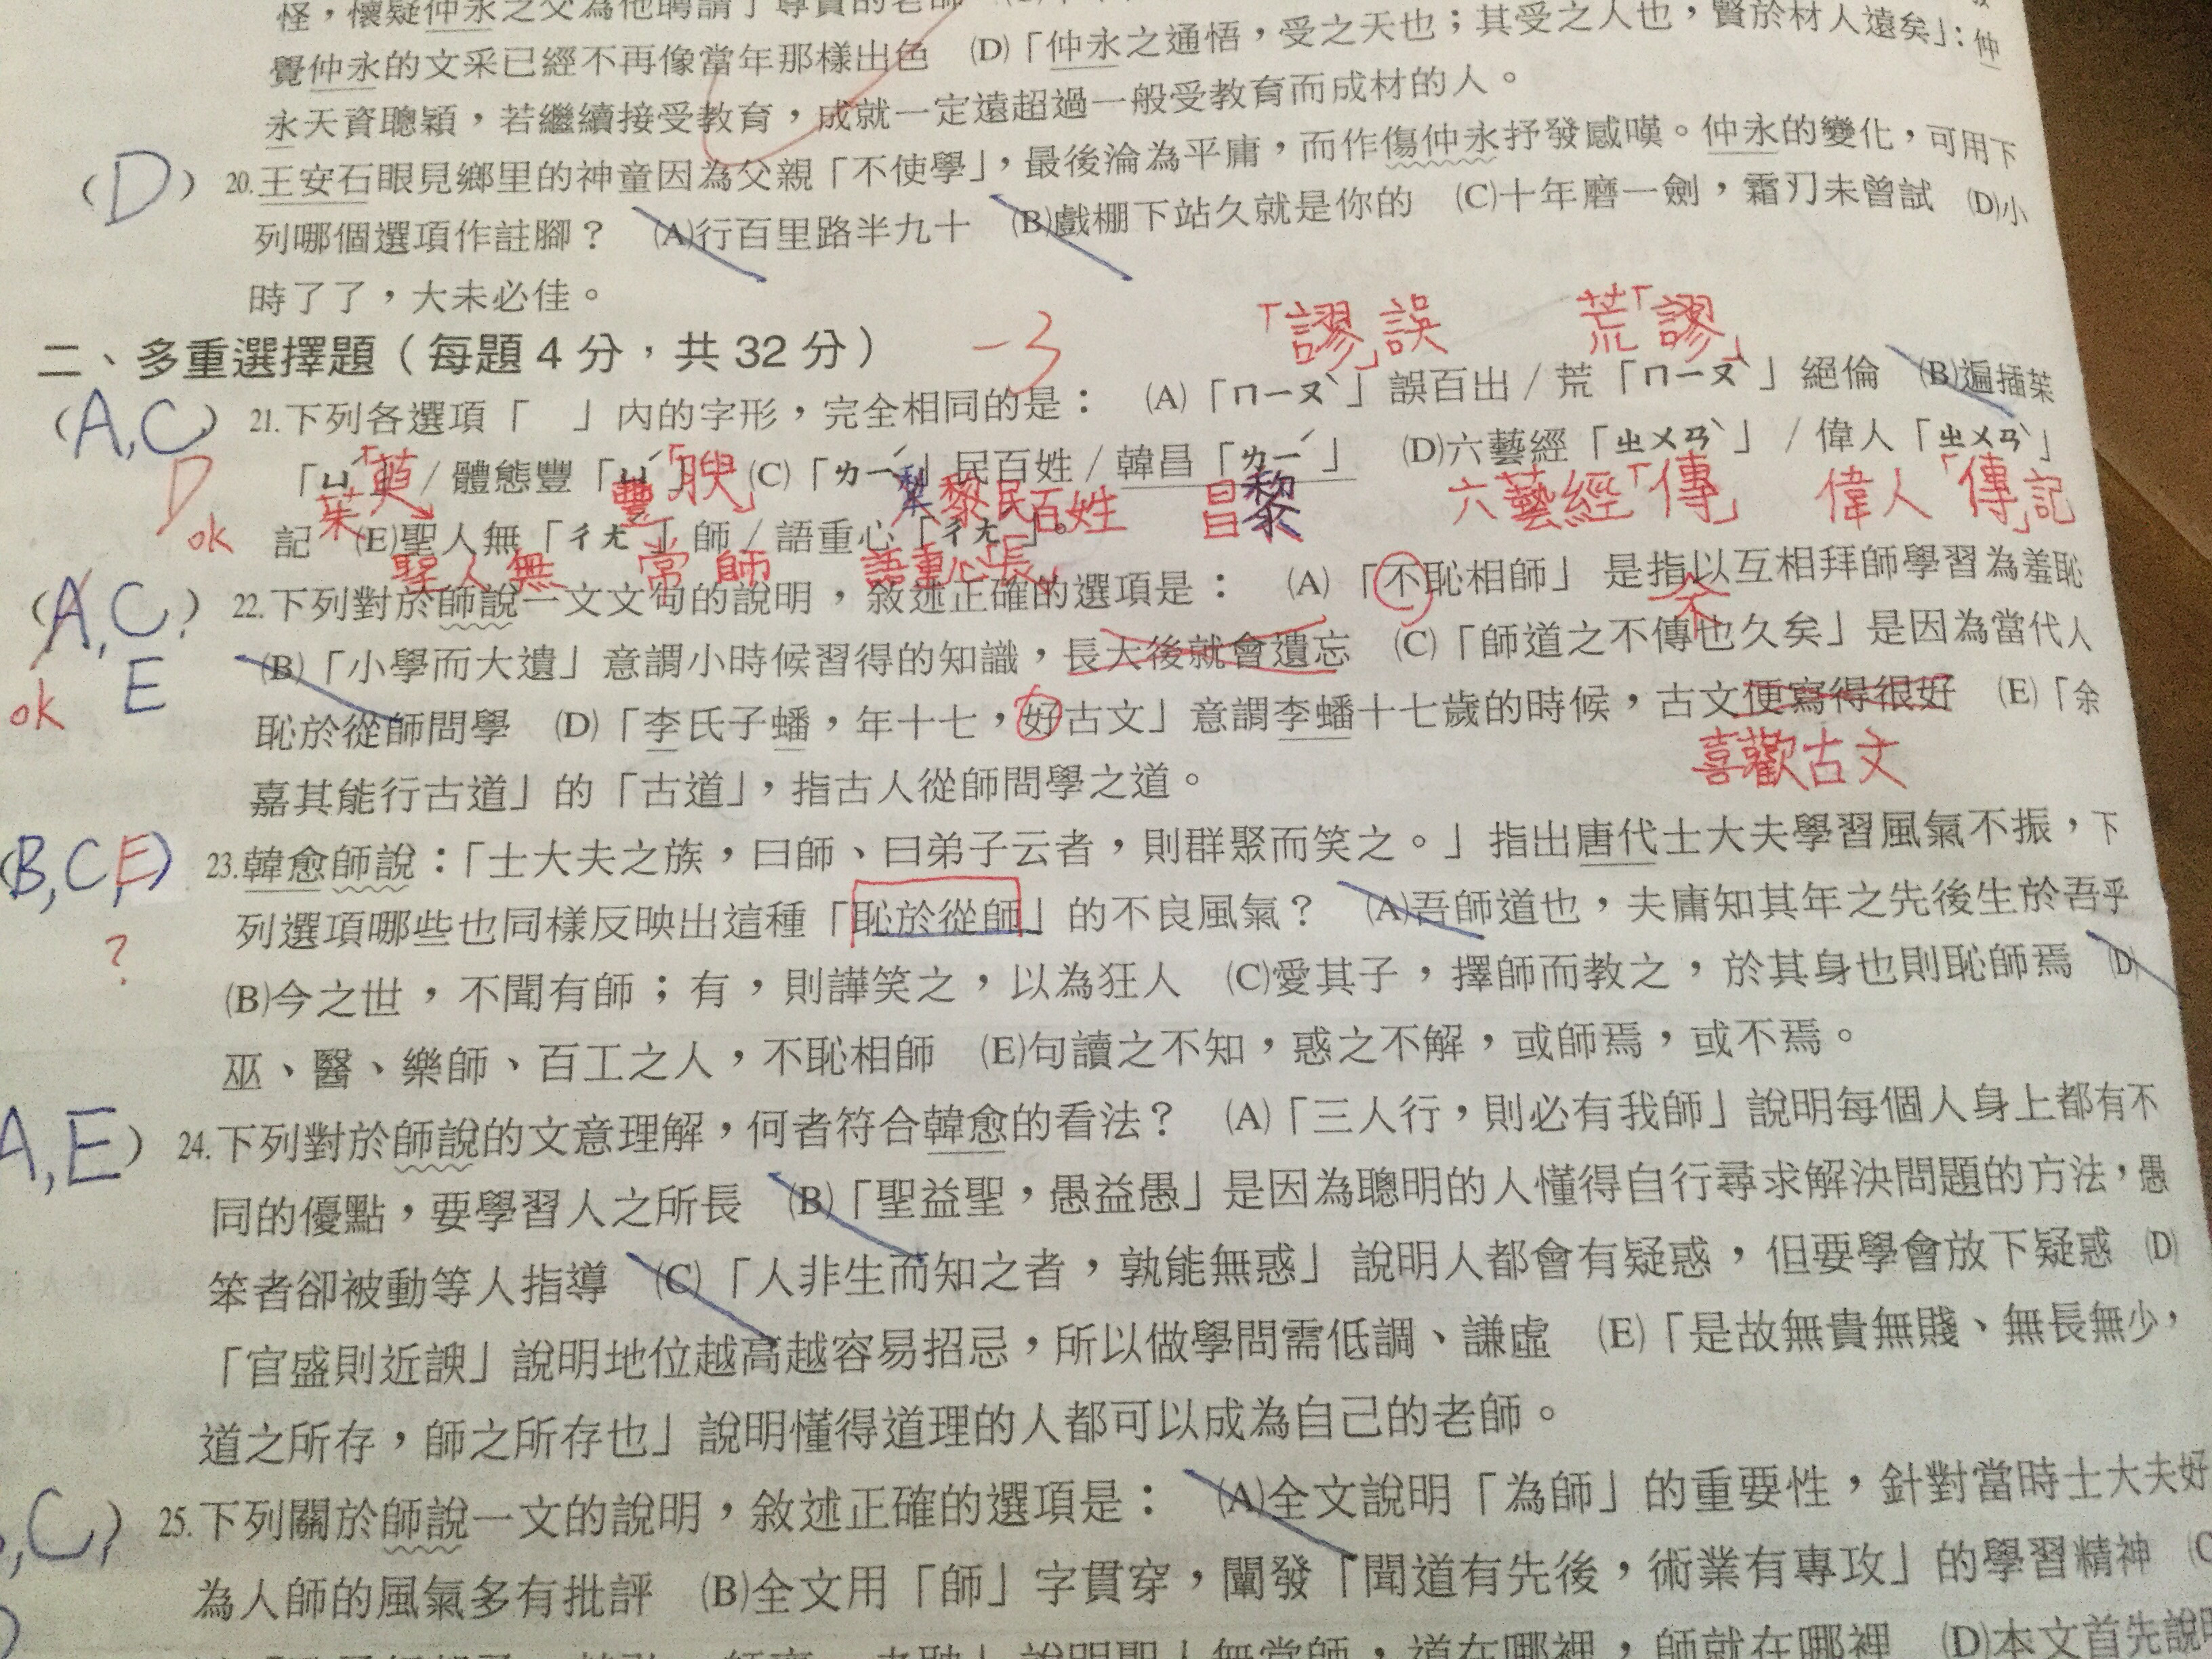 怪，懷疑仲永之父為他聘請了尊貴的老師
覺仲永的文采已經不再像當年那樣出色 (D)「仲永之通悟，受之天也；其受之人也，賢於材人遠矣」：仲
永天資聰穎，若繼續接受教育，成就一定遠超過一般受教育而成材的人。
(D) 20.王安石眼見鄉里的神童因為父親「不使學」，最後淪為平庸，而作傷仲永抒發感嘆。仲永的變化，可用下
列哪個選項作註腳？ (A)行百里路半九十 (B)戲棚下站久就是你的 (C)十年磨一劍，霜刃未曾試 (D)小
時了了，大未必佳。
「謬」誤 荒「謬」
二、多重選擇題（每題 4 分，共 32 分） -3
(A,C) 21.下列各選項「 」內的字形，完全相同的是： (A)「ㄇㄧㄡˋ」誤百出 / 荒「ㄇㄧㄡˋ」絕倫 (B)遍插茱
D ok
「ㄩˊ」 / 體態豐「ㄩˊ」 (C)「ㄌㄧˊ」民百姓 / 韓昌「ㄌㄧˊ」 (D)六藝經「ㄓㄨㄢˋ」 / 偉人「ㄓㄨㄢˋ」
茱「萸」 豐「腴」 黎民百姓 昌黎 六藝經「傳」 偉人「傳」記
記 (E)聖人無「ㄔㄤˊ」師 / 語重心「ㄔㄤˊ」。
聖人無常師 語重心「長」
(A,C, 22.下列對於師說一文文句的說明，敘述正確的選項是： (A)「不恥相師」是指以互相拜師學習為羞恥
E ok
不
(B)「小學而大遺」意謂小時候習得的知識，長大後就會遺忘 (C)「師道之不傳也久矣」是因為當代人
恥於從師問學 (D)「李氏子蟠，年十七，好古文」意謂李蟠十七歲的時候，古文便寫得很好 (E)「余
喜歡古文
嘉其能行古道」的「古道」，指古人從師問學之道。
(B,C,E) 23.韓愈師說：「士大夫之族，曰師、曰弟子云者，則群聚而笑之。」指出唐代士大夫學習風氣不振，下
?
列選項哪些也同樣反映出這種「恥於從師」的不良風氣？ (A)吾師道也，夫庸知其年之先後生於吾乎
(B)今之世，不聞有師；有，則譁笑之，以為狂人 (C)愛其子，擇師而教之，於其身也則恥師焉 (D)
巫、醫、樂師、百工之人，不恥相師 (E)句讀之不知，惑之不解，或師焉，或不焉。
A,E) 24.下列對於師說的文意理解，何者符合韓愈的看法？ (A)「三人行，則必有我師」說明每個人身上都有不
同的優點，要學習人之所長 (B)「聖益聖，愚益愚」是因為聰明的人懂得自行尋求解決問題的方法，愚
笨者卻被動等人指導 (C)「人非生而知之者，孰能無惑」說明人都會有疑惑，但要學會放下疑惑 (D)
「官盛則近諛」說明地位越高越容易招忌，所以做學問需低調、謙虛 (E)「是故無貴無賤、無長無少，
道之所存，師之所存也」說明懂得道理的人都可以成為自己的老師。
,C, 25.下列關於師說一文的說明，敘述正確的選項是： (A)全文說明「為師」的重要性，針對當時士大夫好
為人師的風氣多有批評 (B)全文用「師」字貫穿，闡發「聞道有先後，術業有專攻」的學習精神 (C
說明聖人無常師，道在哪裡，師就在哪裡 (D)本文首先說明